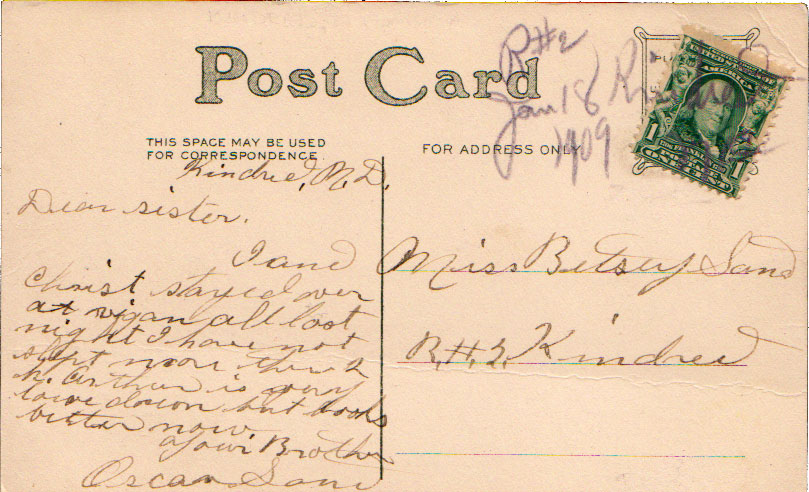 Post Card
THIS SPACE MAY BE USED
FOR CORRESPONDENCE
FOR ADDRESS ONLY
R#2
Jan 18
1909
1
1
Kindred, N.D.
Dear sister.
I and
Christ stayed over
at vigan all last
night I have not
slept more then 2
h. Arthur is very
low down but looks
better now
Your Brother
Oscar Sand
Miss Betsey Sand
Kindred